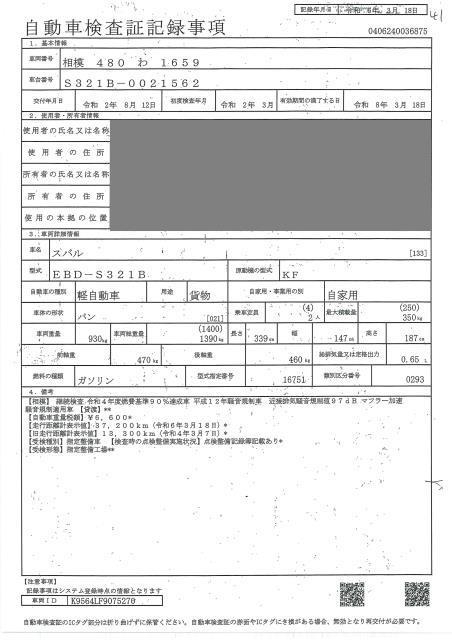 記録年月日 令和 6年 3月 18日
41
自動車検査証記録事項
0406240036875
1. 基本情報
車両番号 相模 480 わ 1659
車台番号 S321B-0021562
交付年月日 令和 2年 8月 12日 初度検査年月 令和 2年 3月 有効期間の満了する日 令和 8年 3月 18日
2. 使用者・所有者情報
使用者の氏名又は名称
使用者の住所
所有者の氏名又は名称
所有者の住所
使用の本拠の位置
3. 車両詳細情報
車名 スバル [133]
型式 EBD-S321B 原動機の型式 KF
自動車の種別 軽自動車 用途 貨物 自家用・事業用の別 自家用
車体の形状 バン [021] 乗車定員 (4) 2人 最大積載量 (250) 350kg
車両重量 930kg 車両総重量 (1400) 1390kg 長さ 339cm 幅 147cm 高さ 187cm
前軸重 470kg 後軸重 460kg 総排気量又は定格出力 0.65 L
燃料の種類 ガソリン 型式指定番号 16751 類別区分番号 0293
4. 備考
【相模】 継続検査 令和4年度燃費基準90%達成車 平成12年騒音規制車 近接排気騒音規制値97dB マフラー加速
騒音規制適用車 【貸渡】**
【自動車重量税額】¥6,600*
【走行距離計表示値】37,200km(令和6年3月18日)*
【旧走行距離計表示値】13,300km(令和4年3月7日)*
【受検種別】指定整備車 【検査時の点検整備実施状況】点検整備記録簿記載あり*
【受検形態】指定整備工場**
【注意事項】
記録事項はシステム登録時点の情報となります
車両ID K9564LF9075270
自動車検査証のICタグ部分は折り曲げずに保管ください。自動車検査証の券面やICタグにき損がある場合、無効となり再交付が必要です。